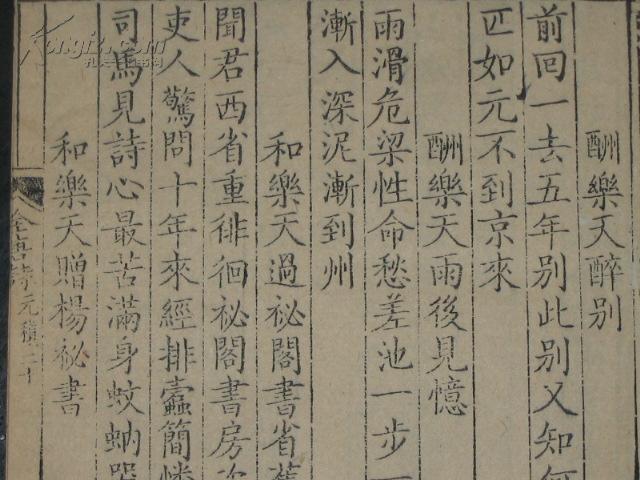 酬樂天醉別
前回一去五年別此別又知何
匹如元不到京來
酬樂天雨後見憶
雨滑危梁性命愁差池一步一
漸入深泥漸到州
和樂天過祕閣書省舊
聞君西省重徘徊祕閣書房次
吏人驚問十年來經排蠧簡憐
司馬見詩心最苦滿身蚊蚋哭
和樂天贈楊祕書
全唐詩 元稹二十
Kongfz.com